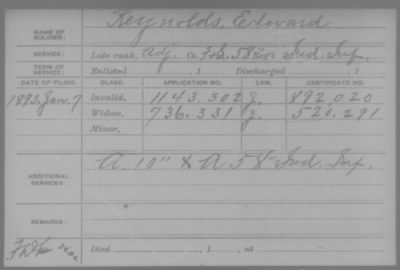 NAME OF SOLDIER: Reynolds, Edward
SERVICE: Late rank, Adj. Co. F&S, 58 Reg't Ind. Inf.
TERM OF SERVICE: Enlisted , 1 Discharged , 1
DATE OF FILING. CLASS. APPLICATION NO. LAW. CERTIFICATE NO.
1893. Jan. 7 Invalid, 1143.302 g. 892.020
Widow, 736.331 g. 520.291
Minor,
ADDITIONAL SERVICES: A. 10" & A-58" Ind. Inf.
REMARKS:
Died , 1 , at